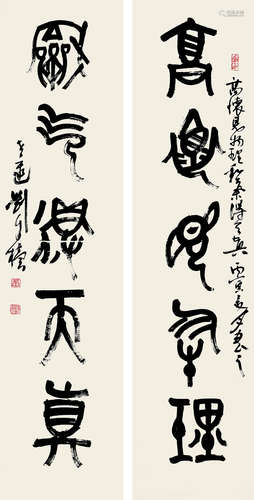 高懷見物理
高懷見物理和氣得天真 丙寅
龢气得天真
劉自櫝